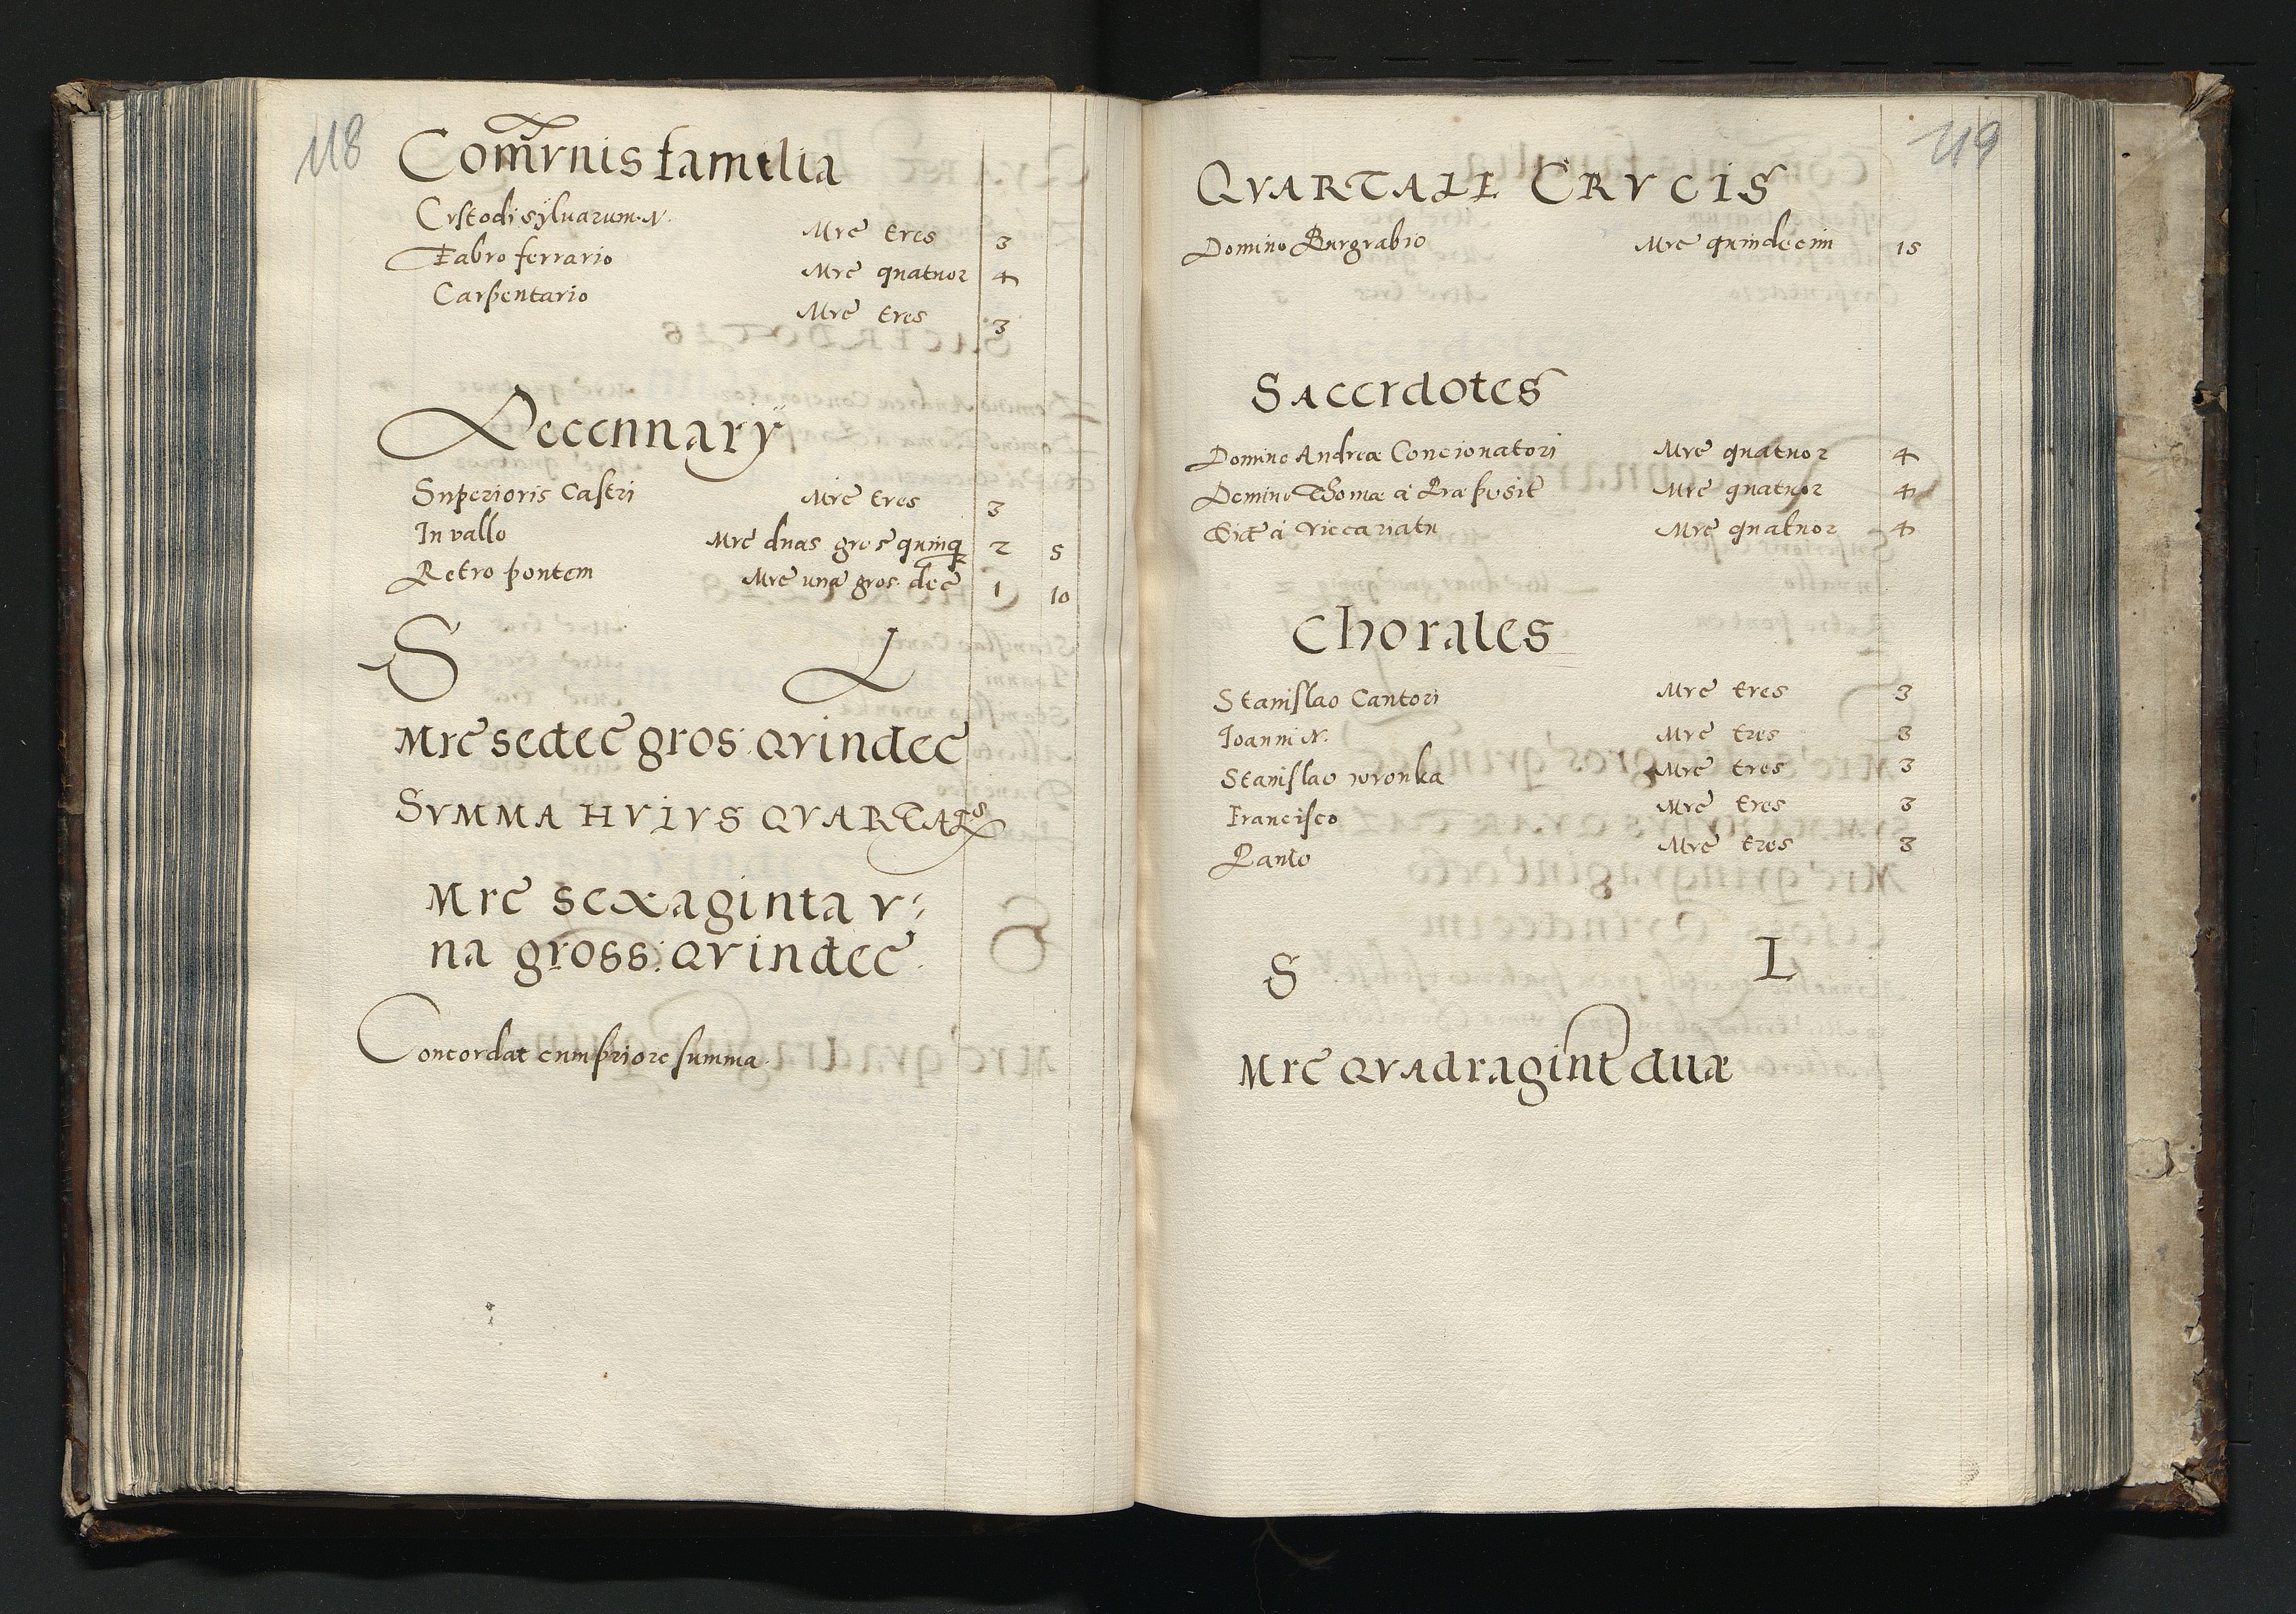 118
Com̄vnis familia
Cvstodi sylvarum. N. Mrc̄ tres 3
Fabro ferrario Mrc̄ quatuor 4
Carpentario Mrc̄ tres 3
Decennarÿ
Superioris Castri Mrc̄ tres 3
In vallo Mrc̄ duas gros quinq 2 5
Retro pontem Mrc̄ unā gros. dec̄ 1 10
S L
Mrc̄ sedec̄ gros. qvindec̄
SVMMA HVIVS QVARTALS
Mrc̄ sexaginta v:
na gross: qvindec̄.
Concordat cum priore summa.
119
QVARTALE CRVCIS
Domino Burgrabio Mrc̄ quindecim 15
Sacerdotes
Domino Andreæ Concionatori Mrc̄ quatuor 4
Domino Thomæ à Præposit̄ Mrc̄ quatuor 4
à viccariatu Mrc̄ quatuor 4
Chorales
Stanislao Cantori Mrc̄ tres 3
Ioanni N. Mrc̄ tres 3
Stanislao wronka Mrc̄ tres 3
Francisco Mrc̄ tres 3
Paulo Mrc̄ tres 3
S L
Mrc̄ qvadragint duæ